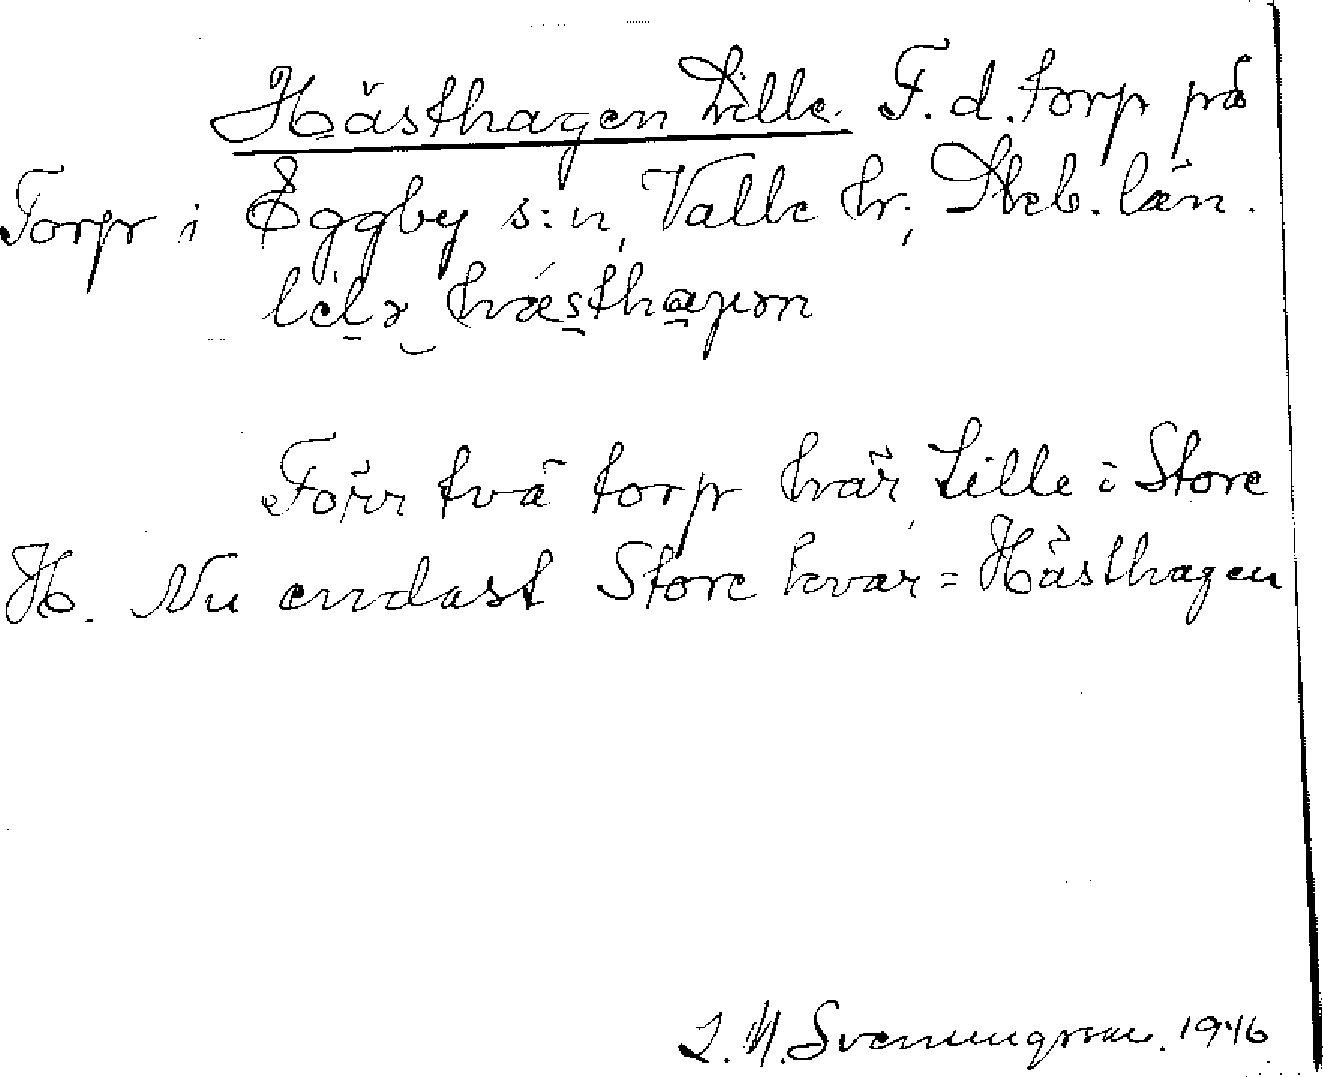 Hästhagen Lille. F. d. torp på
Torp i Eggby s:n, Valle hr; Skcb. län.
Förr två torp här, Lille o Store
H. Nu endast Store kvar = Hästhagen
S. M. Svenungsson. 1946